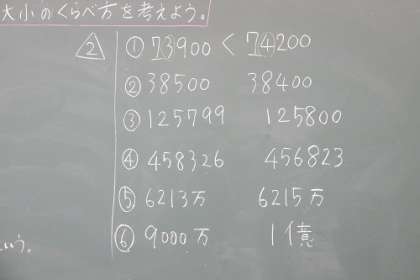 大小のくらべ方を考えよう。
2 ① 73900 < 74200
② 38500 38400
③ 125799 125800
④ 458326 456823
⑤ 6213万 6215万
⑥ 9000万 1億
いう。